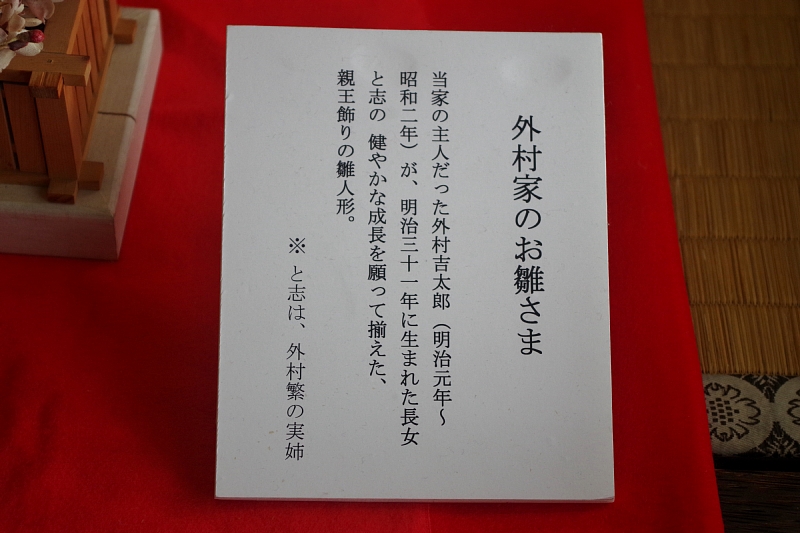 外村家のお雛さま
当家の主人だった外村吉太郎（明治元年～
昭和二年）が、明治三十一年に生まれた長女
と志の 健やかな成長を願って揃えた、
親王飾りの雛人形。
※ と志は、外村繁の実姉